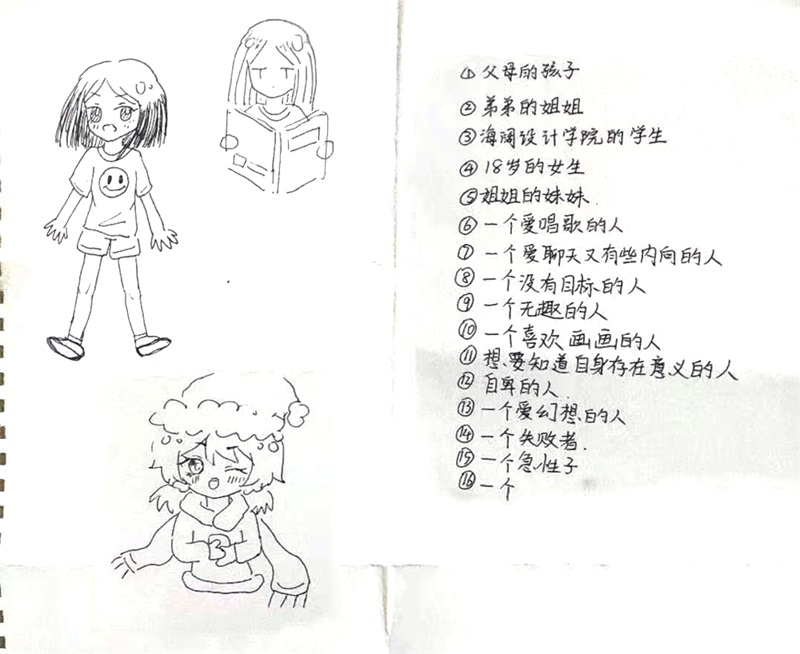 ①父母的孩子
②弟弟的姐姐
③海阔设计学院的学生
④18岁的女生
⑤姐姐的妹妹.
⑥一个爱唱歌的人
⑦一个爱聊天又有些内向的人
⑧一个没有目标的人
⑨一个无趣的人
⑩一个喜欢画画的人
⑪想要知道自身存在意义的人
⑫自卑的人.
⑬一个爱幻想的人
⑭一个失败者.
⑮一个急性子
⑯一个